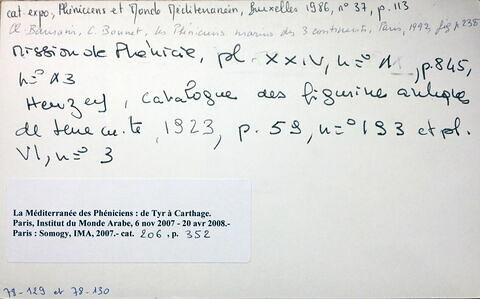 cat. expo, Phéniciens et Monde Méditerranéen, Bruxelles 1986, n° 37, p. 113
Cl. Baurain, C. Bonnet, Les Phéniciens marins des 3 continents, Paris, 1992, fig p 235
Mission de Phénicie, pl. XXIV, n=° 11, p. 845,
n=° 13
Heuzey, Catalogue des figurine antiques
de terre cuite, 1923, p. 59, n=° 193 et pl.
VI, n=° 3
La Méditerranée des Phéniciens : de Tyr à Carthage.
Paris, Institut du Monde Arabe, 6 nov 2007 - 20 avr 2008.-
Paris : Somogy, IMA, 2007.- cat. 206, p. 352
78-129 et 78-130